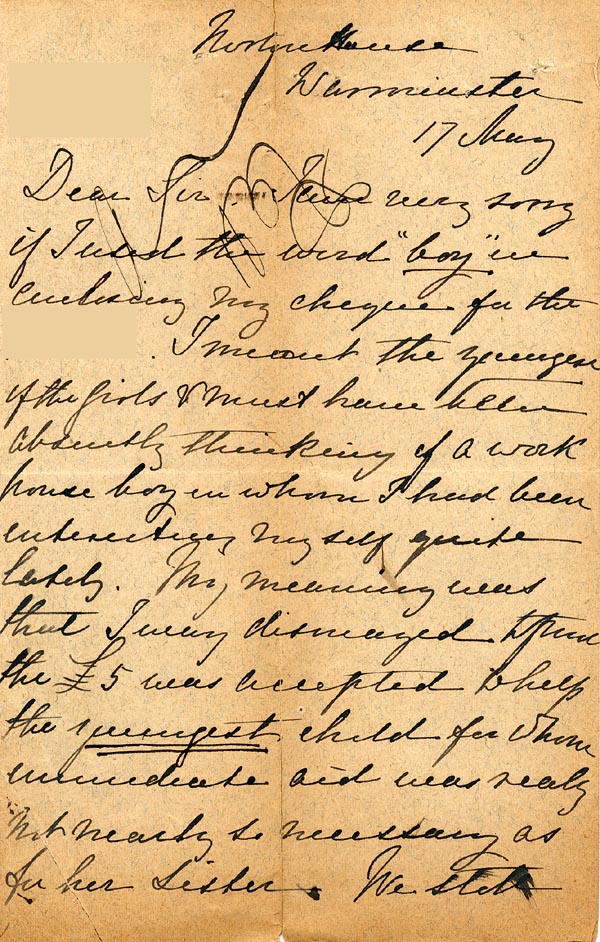 Norton House
Warminster
17 May
Dear Sir I am very sorry
if I used the word "boy" in
enclosing my cheque for the
. I meant the youngest
of the girls & must have been
absently thinking of a work
house boy in whom I had been
interesting myself quite
lately. My meaning was
that I was dismayed to find
the £5 was accepted to help
the youngest child for whom
immediate aid was really
not nearly so necessary as
for her sister. We still